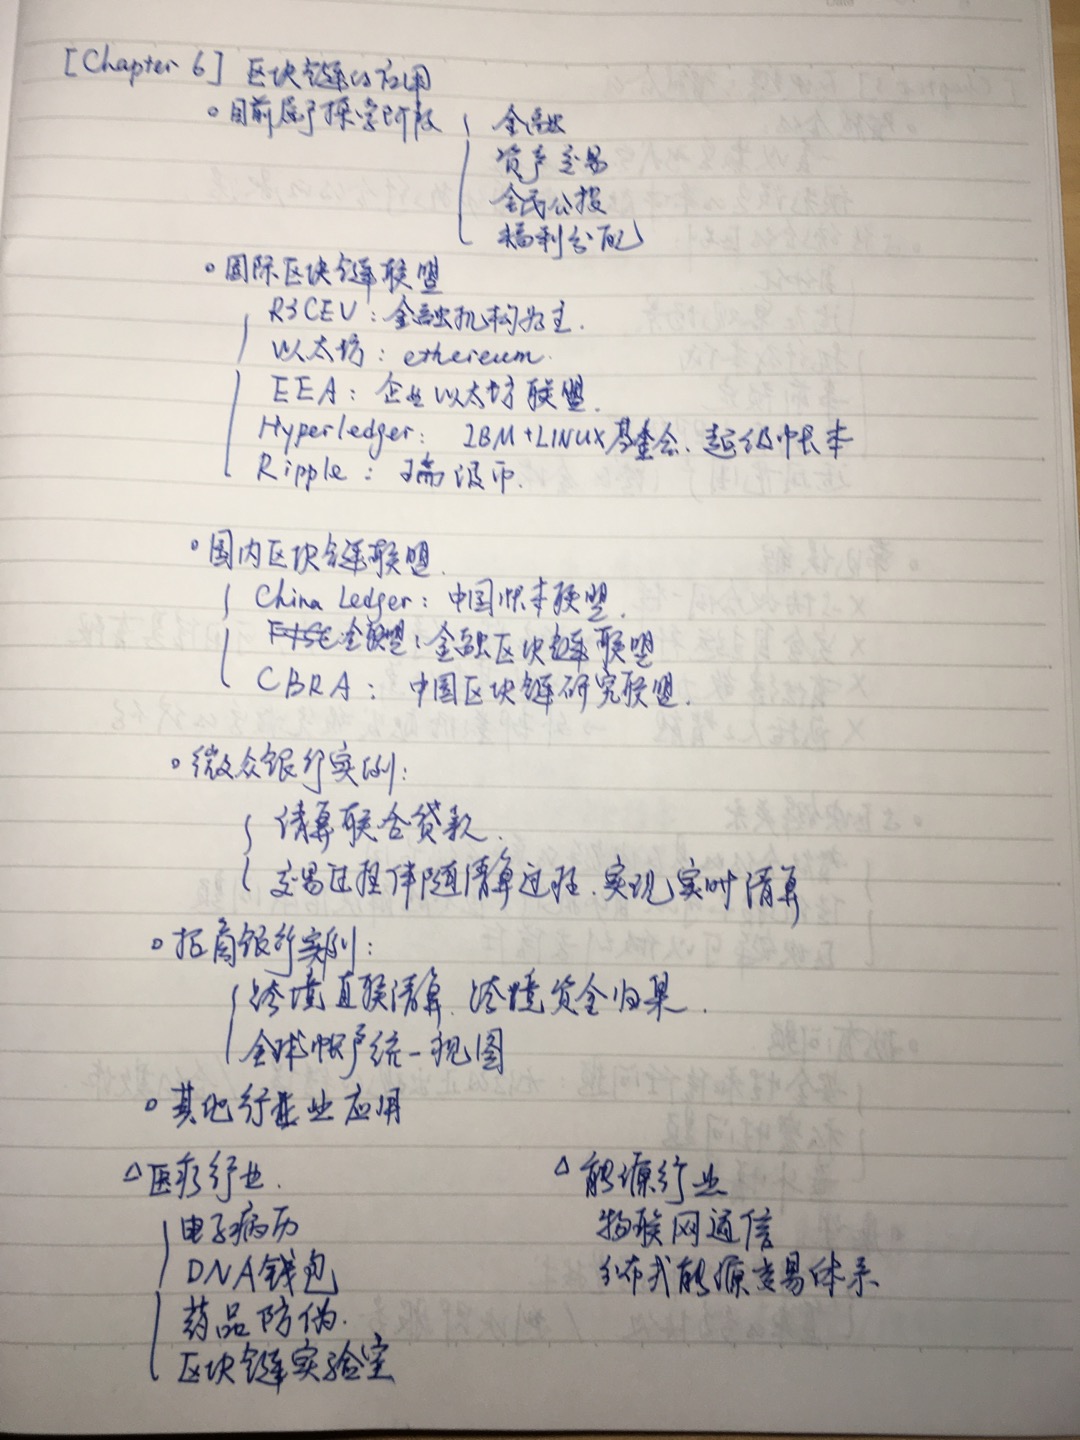 [Chapter 6] 区块链的应用
。目前属于探索阶段
金融
资产交易
全民公投
福利分配
。国际区块链联盟
R3CEV：金融机构为主.
以太坊：ethereum.
EEA：企业以太坊联盟.
Hyperledger： IBM+LINUX基金会、超级帐本
Ripple：瑞波币.
。国内区块链联盟.
China Ledger：中国帐本联盟.
金联盟：金融区块链联盟
CBRA：中国区块链研究联盟.
。微众银行实例：
清算联合贷款.
交易过程伴随清算过程、实现实时清算
。招商银行实例：
跨境直联清算、跨境资金归集.
全球帐户统一视图
。其他行业应用
△医疗行业.
电子病历
DNA钱包
药品防伪.
区块链实验室
△能源行业
物联网通信
分布式能源交易体系